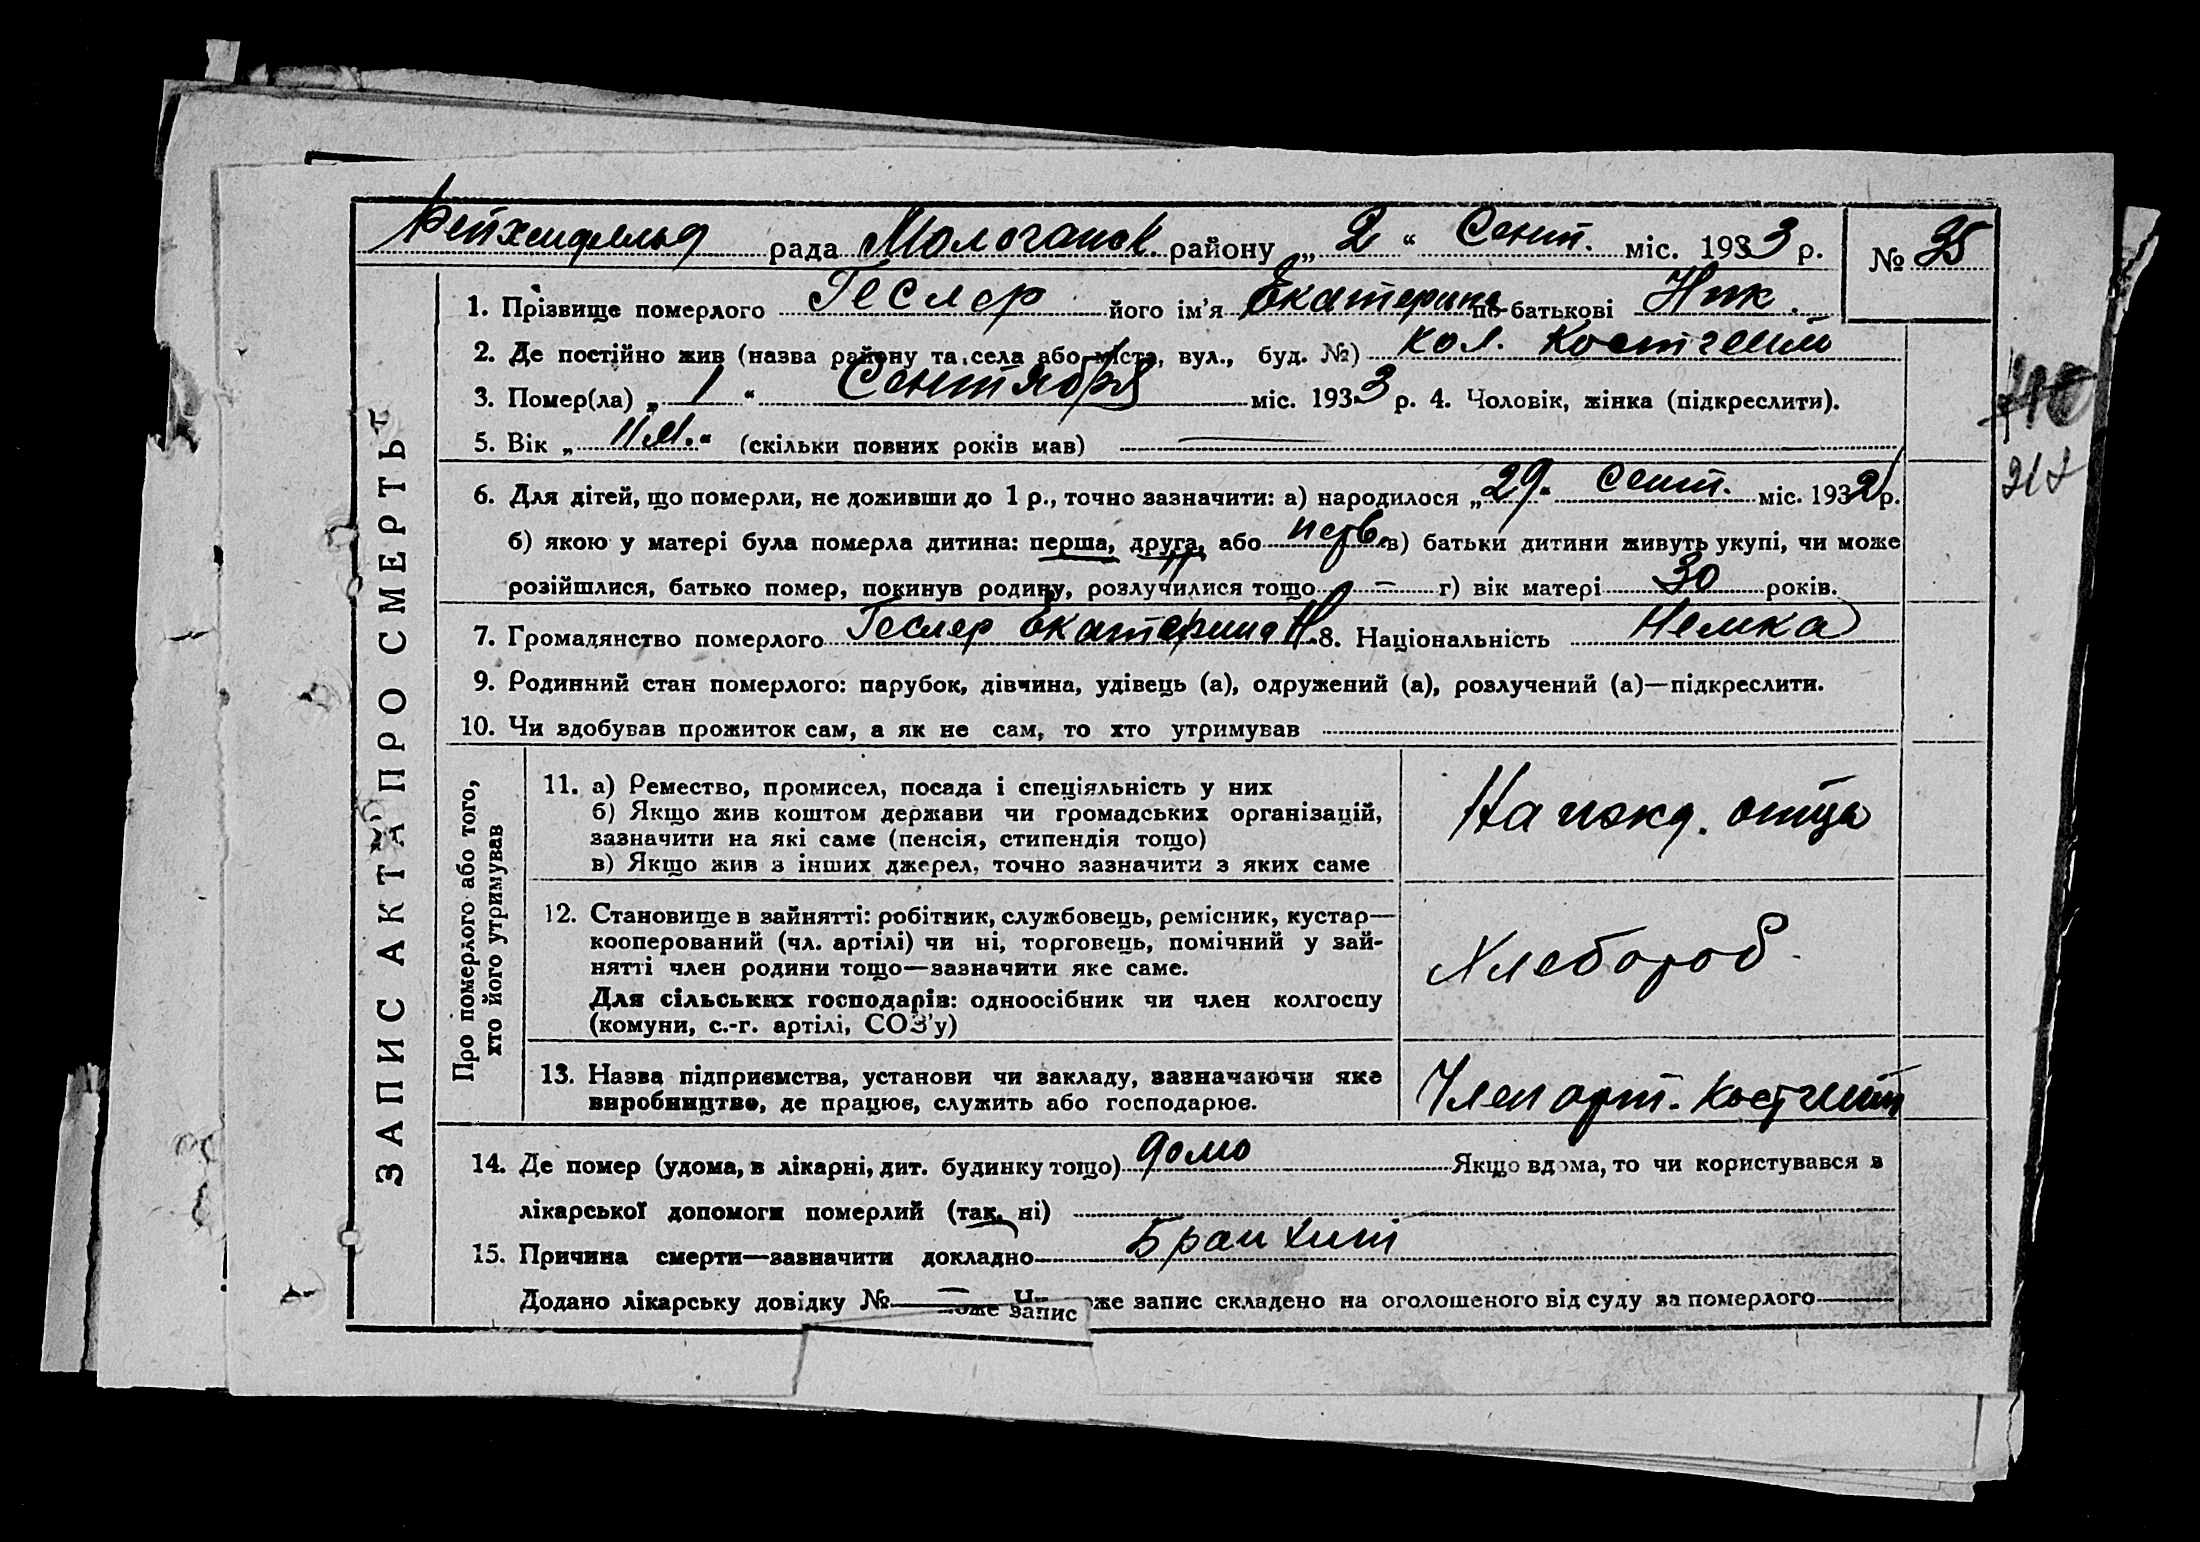 Рейхенфельд рада Молочанск. району „ 2 “ Сент. міс. 1933 р. № 35
1. Прізвище померлого Геслер його ім’я Екатерина по-батькові Ник.
2. Де постійно жив (назва району та села або міста, вул., буд. №) кол. Костгейм
3. Помер(ла) „ 1 “ Сентября міс. 1933 р. 4. Чоловік, жінка (підкреслити).
5. Вік „ 11 м. “ (скільки повних років мав) —
6. Для дітей, що померли, не доживши до 1 р., точно зазначити: а) народилося „ 29 “ Сент. міс. 1932 р.
б) якою у матері була померла дитина: перша, друга, або перв. в) батьки дитини живуть укупі, чи може
розійшлися, батько помер, покинув родину, розлучилися тощо — г) вік матері 30 років.
7. Громадянство померлого Геслер Екатерина Н. 8. Національність Немка
9. Родинний стан померлого: парубок, дівчина, удівець (а), одружений (а), розлучений (а)—підкреслити.
10. Чи здобував прожиток сам, а як не сам, то хто утримував
ЗАПИС АКТА ПРО СМЕРТЬ
Про померлого або того,
хто його утримував
11. а) Ремество, промисел, посада і спеціяльність у них
б) Якщо жив коштом держави чи громадських організацій,
зазначити на які саме (пенсія, стипендія тощо)
в) Якщо жив з інших джерел, точно зазначити з яких саме
На ижд. отца
12. Становище в зайнятті: робітник, службовець, ремісник, кустар—
кооперований (чл. артілі) чи ні, торговець, помічний у зай-
нятті член родини тощо—зазначити яке саме.
Для сільських господарів: одноосібник чи член колгоспу
(комуни, с.-г. артілі, СОЗ’у)
Хлебороб
13. Назва підприємства, установи чи закладу, зазначаючи яке
виробництво, де працює, служить або господарює.
Член арт. Костгейм
14. Де помер (удома, в лікарні, дит. будинку тощо) дома Якщо вдома, то чи користувався з
лікарської допомоги померлий (так, ні)
15. Причина смерти—зазначити докладно Бранхит
Додано лікарську довідку № — може запис оже запис складено на оголошеного від суду за померлого